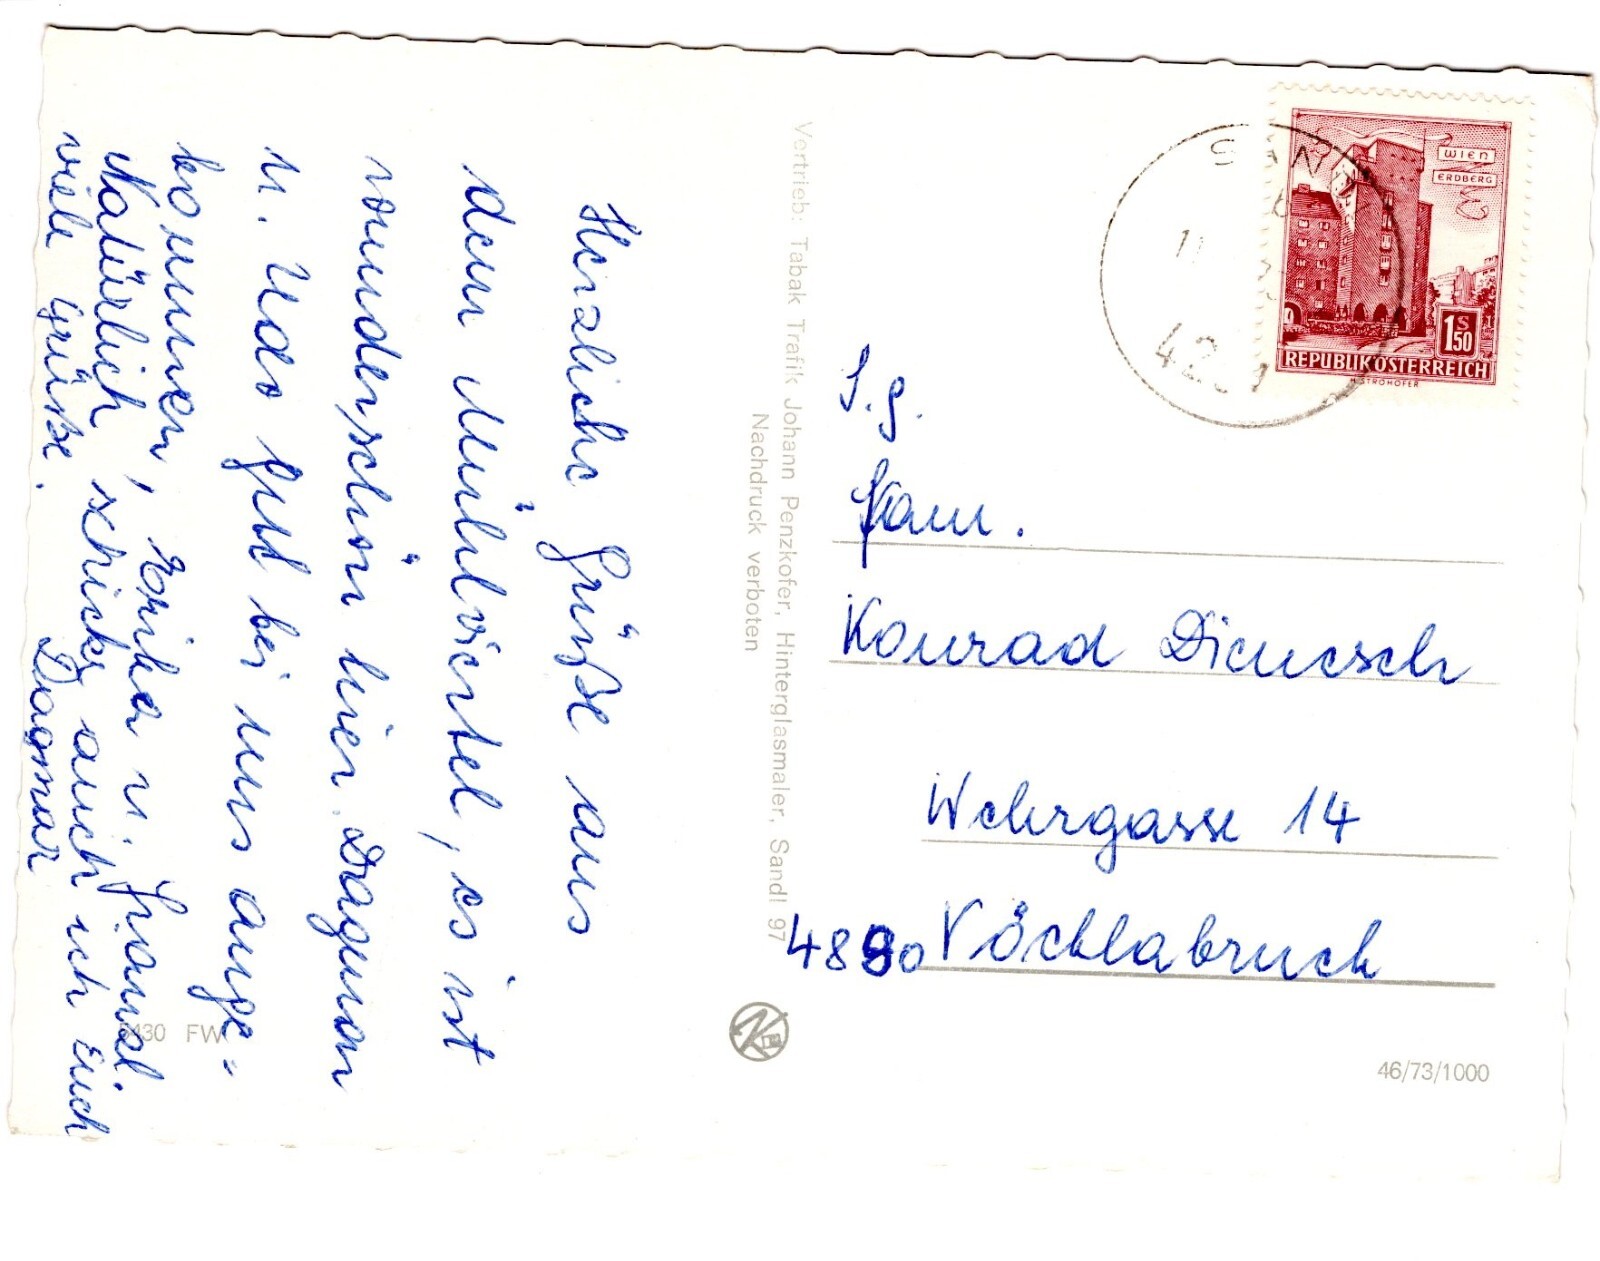 Herzliche Grüße aus
dem Mühlviertel, es ist
wunderschön hier. Dagmar
u. Udo gut bei uns ange=
kommen, Erika u. Hansl.
Natürlich schicke auch ich Euch
viele Grüße. Dagmar
Vertrieb: Tabak Trafik Johann Penzkofer, Hinterglasmaler, Sandl 97
Nachdruck verboten
5430 FW
WIEN
ERDBERG
1S50
REPUBLIK ÖSTERREICH
H. STROHOFER
S.g.
Fam.
Konrad Dienesch
Wehrgasse 14
4880 Vöcklabruck
46/73/1000